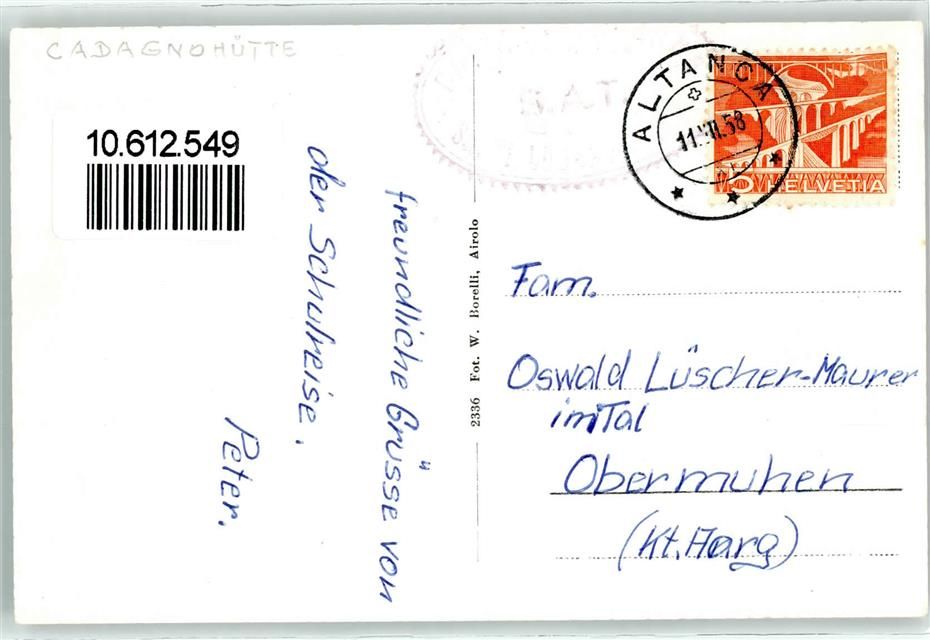 CADAGNOHÜTTE
10.612.549
freundliche Grüsse von
der Schulreise.
Peter.
2336 Fot. W. Borelli, Airolo
S.A.T.
ALTANCA
58
5 HELVETIA
Fam.
Oswald Lüscher-Maurer
im Tal
Obermuhen
(Kt. Aarg)